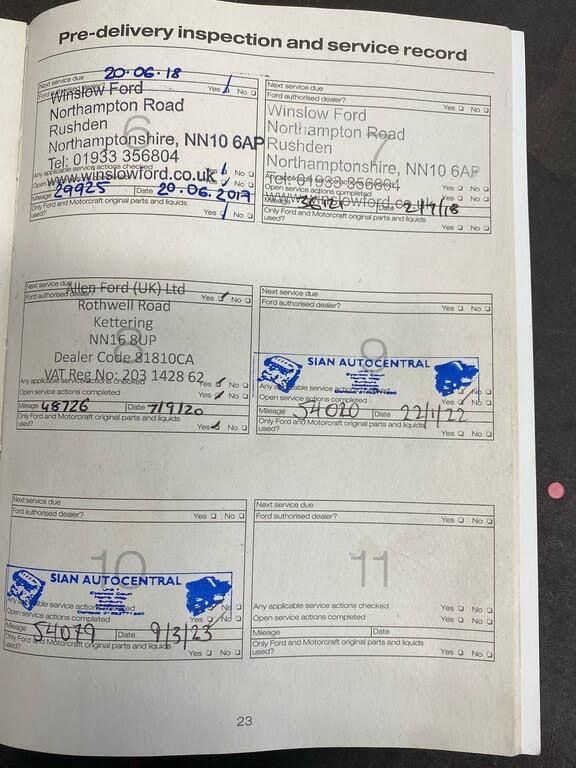 Pre-delivery inspection and service record
Next service due 20.06.18
Ford authorised dealer? Yes No
Winslow Ford
Northampton Road
Rushden
6
Northamptonshire, NN10 6AP
Tel: 01933 356804
Any applicable service actions checked Yes No
Open service actions completed Yes No
www.winslowford.co.uk
Mileage 29925 Date 20.06.2017
Only Ford and Motorcraft original parts and liquids used? Yes No
Next service due
Ford authorised dealer? Yes No
Winslow Ford
Northampton Road
Rushden
7
Northamptonshire, NN10 6AP
Tel: 01933 356804
Yes No
Open service actions completed Yes No
www.winslowford.co
Mileage 36121 Date
Only Ford and Motorcraft original parts and liquids used? Yes No
Next service due
Ford authorised dealer? Yes No
Allen Ford (UK) Ltd
Rothwell Road
Kettering
NN16 8UP
8
Dealer Code 81810CA
VAT Reg No: 203 1428 62
Any applicable service actions checked Yes No
Open service actions completed Yes No
Mileage 48726 Date 7/9/20
Only Ford and Motorcraft original parts and liquids used? Yes No
Next service due
Ford authorised dealer? Yes No
9
SIAN AUTOCENTRAL
Any applicable service
Open service actions completed Yes No
Mileage 54020 Date 22/1/22
Only Ford and Motorcraft original parts and liquids used? Yes No
Next service due
Ford authorised dealer? Yes No
10
SIAN AUTOCENTRAL
Any applicable service No
Open service actions completed Yes No
Mileage 54079 Date 9/3/23
Only Ford and Motorcraft original parts and liquids used? Yes No
Next service due
Ford authorised dealer? Yes No
11
Any applicable service actions checked Yes No
Open service actions completed Yes No
Mileage Date
Only Ford and Motorcraft original parts and liquids used? Yes No
23